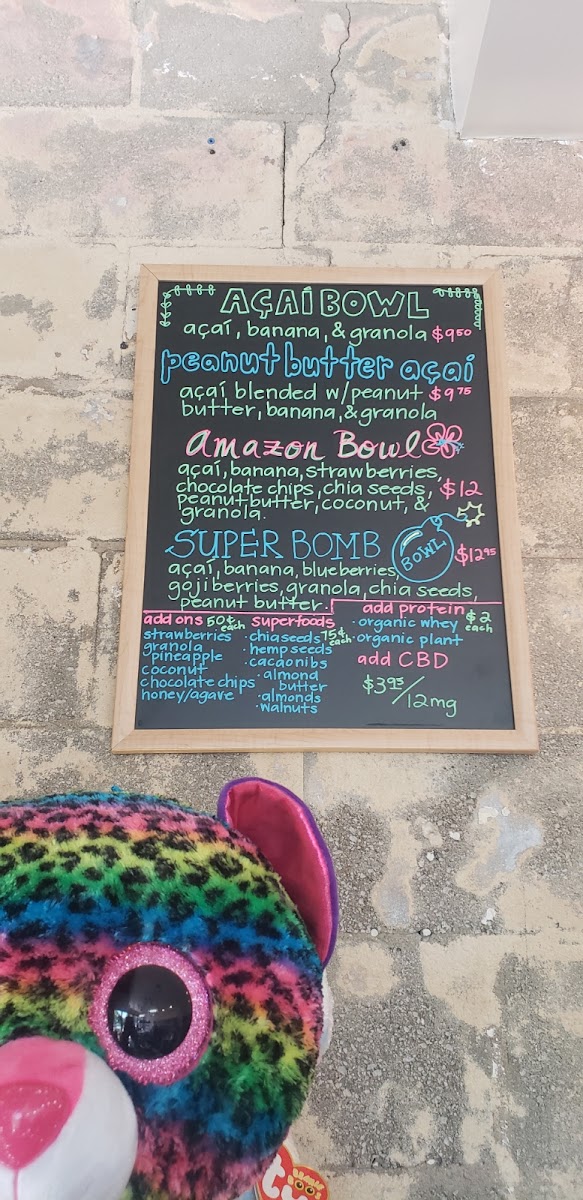 AÇAÍ BOWL
açaí, banana, & granola $9.50
peanut butter açaí
açaí blended w/peanut $9.75
butter, banana, & granola
Amazon Bowl
açaí, banana, strawberries,
chocolate chips, chia seeds, $12
peanut butter, coconut, &
granola.
SUPER BOMB BOWL $12.95
açaí, banana, blueberries,
goji berries, granola, chia seeds,
peanut butter.
add ons 50¢ each
strawberries
granola
pineapple
coconut
chocolate chips
honey/agave
superfoods 75¢ each
· chia seeds
· hemp seeds
· cacao nibs
· almond
butter
· almonds
· walnuts
add protein $2 each
· organic whey
· organic plant
add CBD
$3.95/12mg
ty